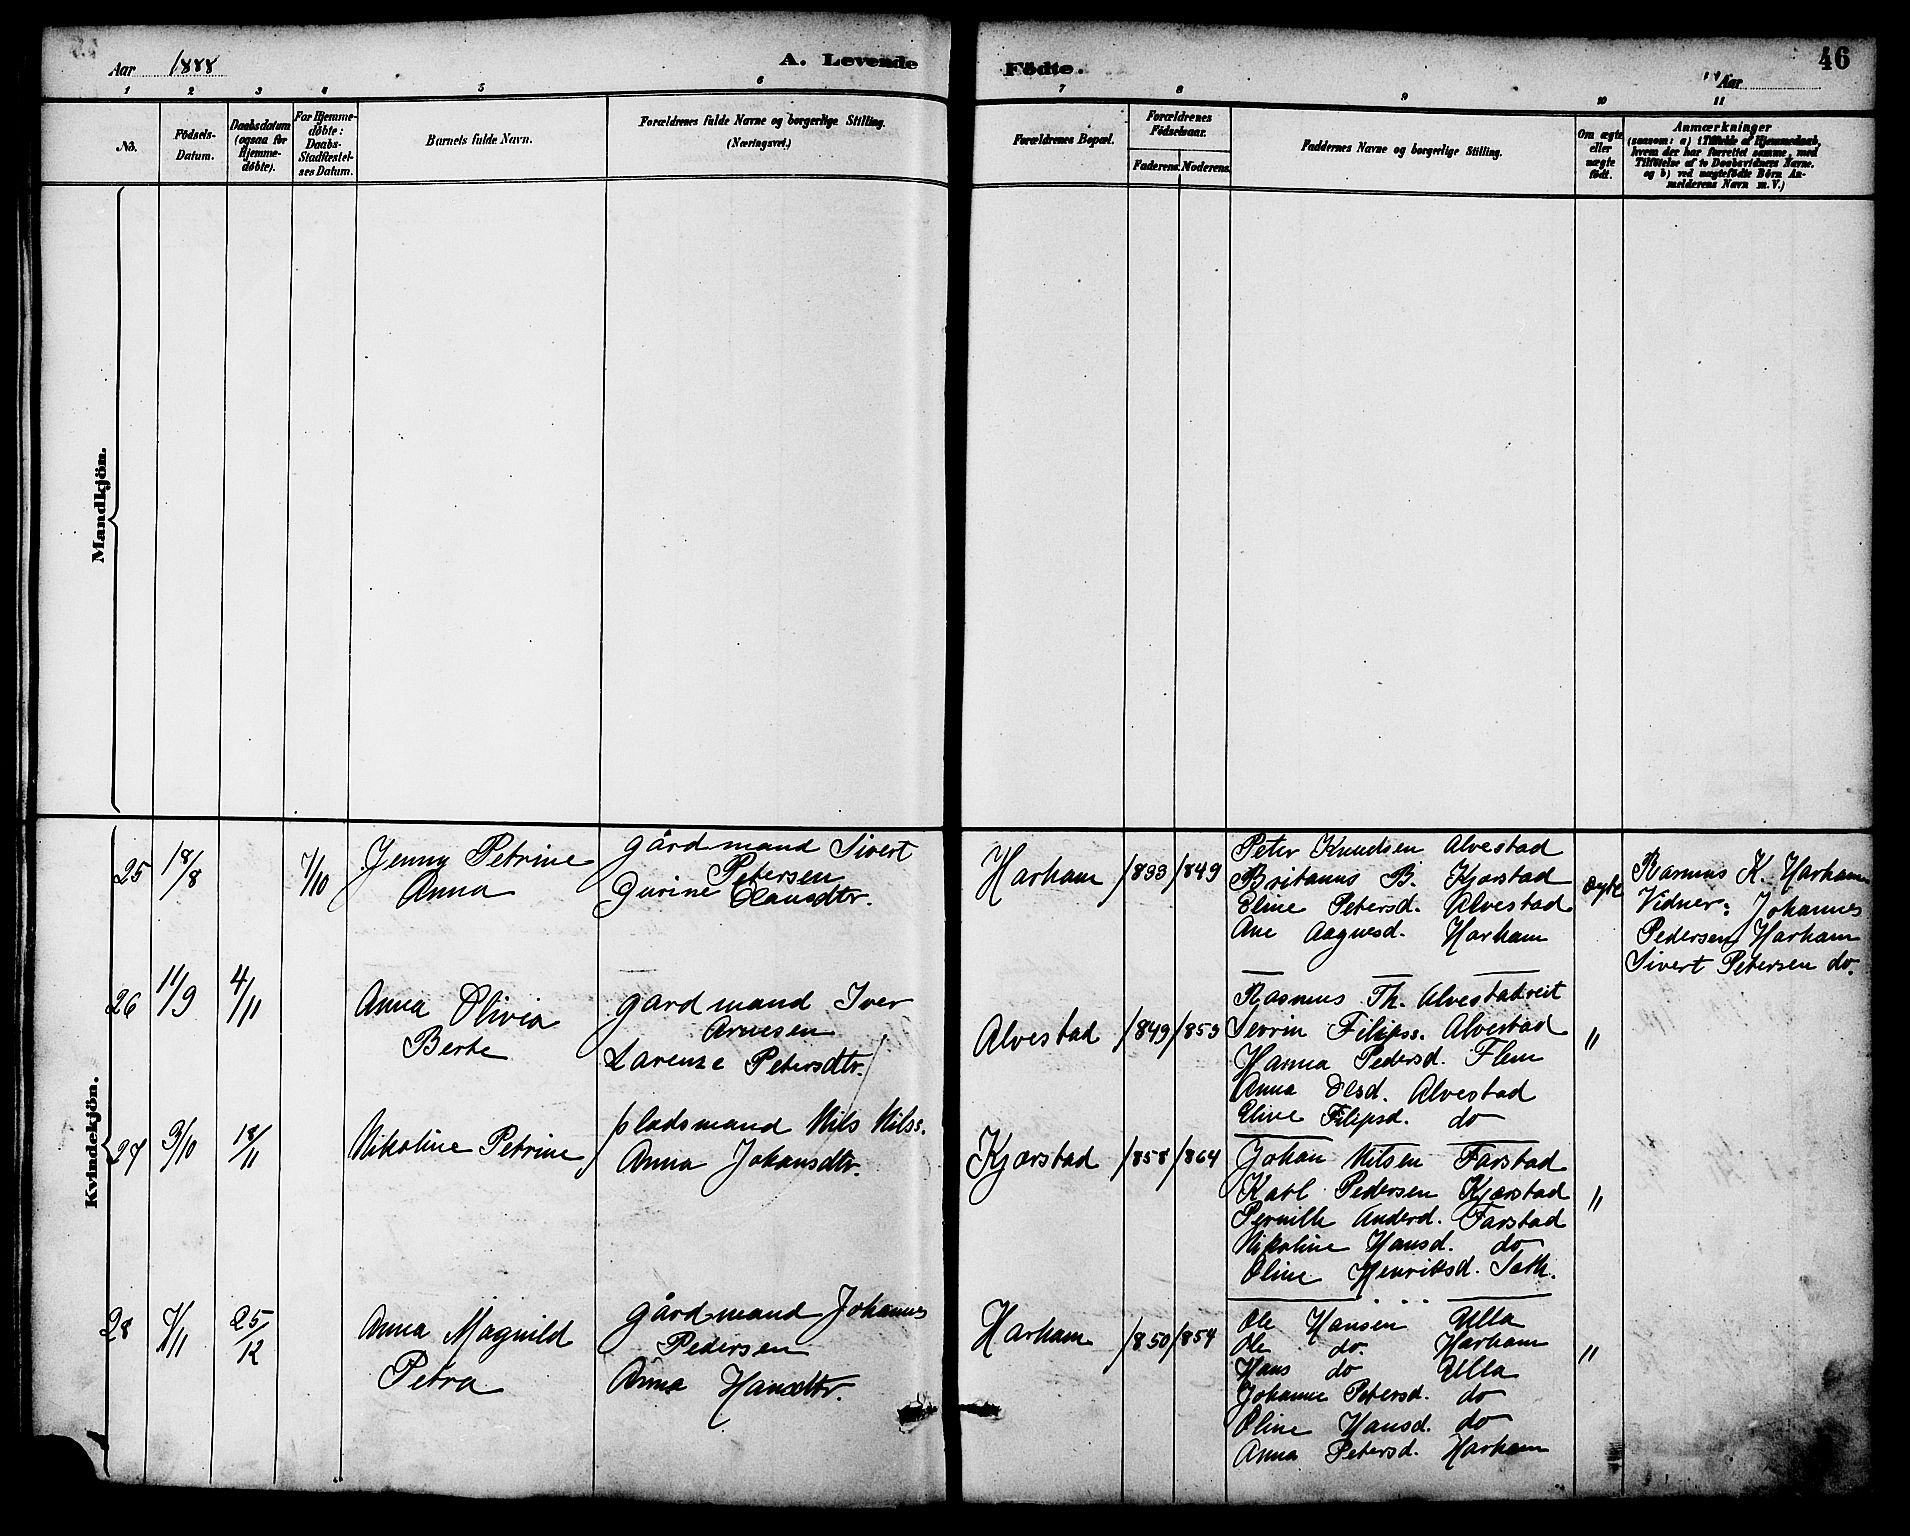 Aar 1888
A. Levende
Födte.
Aar
46
1 2 3 4 5 6 7 8 9 10 11
No.
Födsels-
Datum.
Daabsdatum
(ogsaa for
Hjemme-
döbte).
For Hjemme-
döbte:
Daabs-
Stadfæstel-
ses Datum.
Barnets fulde Navn.
Forældrenes fulde Navne og borgerlige Stilling.
(Næringsvei.)
Forældrenes Bopæl.
Forældrenes
Födselsaar.
Faderens. Moderens.
Faddernes Navne og borgerlige Stilling.
Om ægte
eller
uægte
födt.
Anmærkninger
(saasom: a) i Tilfælde af Hjemmedaab,
hvem der har forrettet samme, med
Tilföielse af to Daabsvidners Navne.
og b) ved uægtefödte Börn An-
melderens Navn m. V.)
Mandkjön.
Kvindekjön.
25
18/8
7/10
Jenny Petrine
Anna
gårdmand Sivert
Petersen
Gurine Clausdtr.
Harham
1833
1849
Peter Knudsen Alvestad
Britanus B. Kjærstad
Eline Petersd. Alvestad
Ane Aagnesd. Harham
ægte
Rasmus K. Harham
Vidner: Johannes
Pedersen Harham
Sivert Petersen do.
26
11/9
4/11
Anna Olivia
Berte
gardmand Iver
Arnesen
Larense Petersdtr.
Alvestad
1849
1853
Rasmus Th. Alvestadreit
Severin Filipss. Alvestad
Hanna Pedersd. Flem
Anna Olsd. Alvestad
Eline Filipsd. do
"
27
3/10
18/11
Nikoline Petrine
pladsmand Nils Nilss.
Anna Johansdtr.
Kjærstad
1858
1864
Johan Nilsen Farstad
Karl Pedersen Kjærstad
Pernille Anderd. Farstad
Nikoline Hansd. do
Oline Henriksd. Sæth.
"
28
7/11
25/12
Anna Magnild
Petra
gårdmand Johannes
Pedersen
Anna Hansdtr.
Harham
1850
1854
Ole Hansen Ulla
Ole do. Harham
Hans do Ulla
Johanne Petersd. do
Oline Hansd. do
Anna Petersd. Harham
"